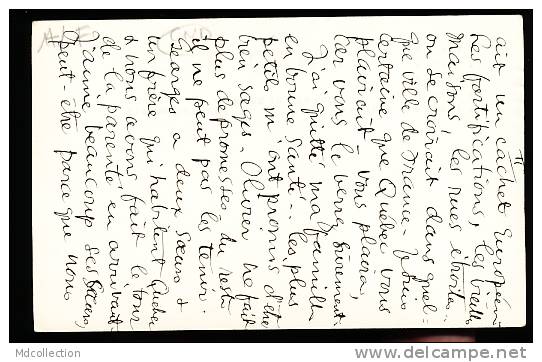 II
ait un cachet Européen
Les fortifications, les vieilles
maisons, les rues étroites..
on se croirait dans quel=
que ville de France. Je suis
certaine que Québec vous
plairait - vous plaira,
car vous le verrez sûrement.
J'ai quitté ma famille
en bonne santé - les plus
petits m'ont promis d'être
bien sages - Olivier ne fait
plus de promesses du reste
il ne peut pas les tenir.
Georges a deux soeurs &
un frère qui habitent Québec
& nous avons fait le tour
de la parenté en arrivant
J'aime beaucoup ses soeurs,
peut-être parce que nous
Mdcollection
http://www.delcampe.net